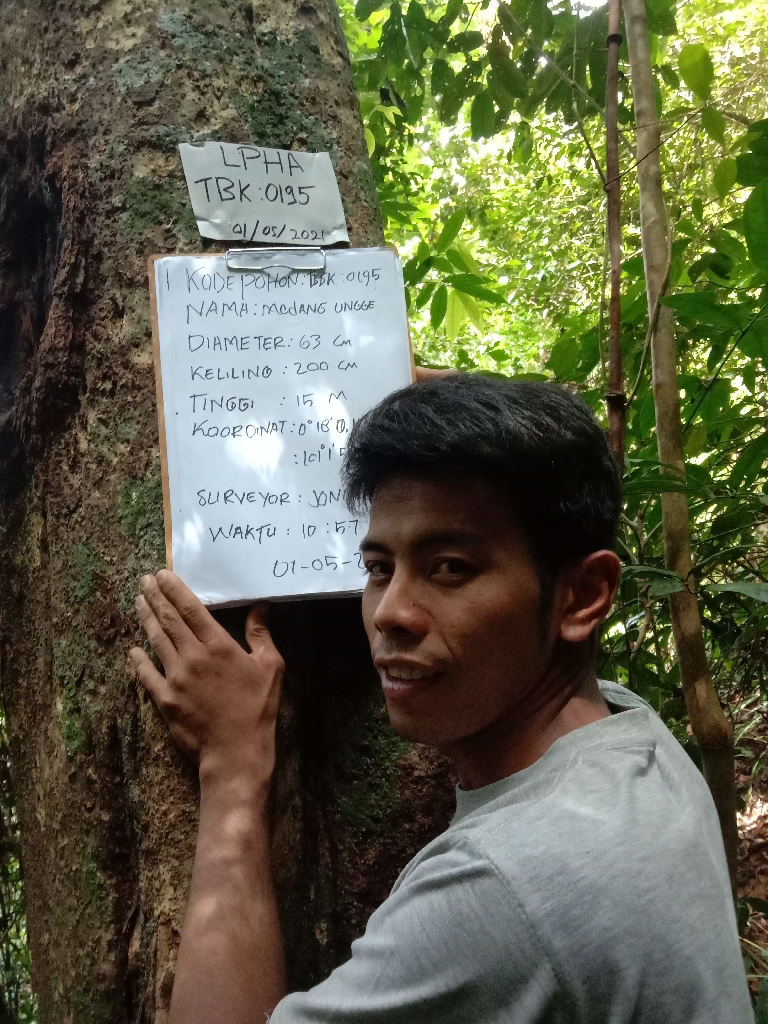 LPHA
TBK:0195
01/05/2021
KODE POHON: TBK:0195
NAMA: MEDANG UNGGE
DIAMETER: 63 CM
KELILING : 200 CM
TINGGI : 15 M
KOORDINAT : 0° 18'
: 101° 1'
SURVEYOR :
WAKTU : 10 : 57
01-05-